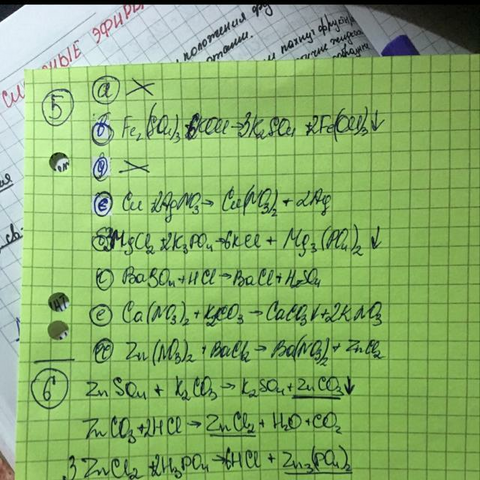 СЛОЖНЫЕ ЭФИРЫ
положения
пахнут
5
а) ×
б) Fe2(SO4)3 + 6KOH → 3K2SO4 + 2Fe(OH)3↓
д) ×
е) Cu + 2AgNO3 → Cu(NO3)2 + 2Ag
б) 3MgCl2 + 2K3PO4 → 6KCl + Mg3(PO4)2↓
с) BaSO4 + HCl → BaCl + H2SO4
е) Ca(NO3)2 + K2CO3 → CaCO3↓ + 2KNO3
Zn(NO3)2 + BaCl2 → Ba(NO3)2 + ZnCl2
6
ZnSO4 + K2CO3 → K2SO4 + ZnCO3↓
ZnCO3 + 2HCl → ZnCl2 + H2O + CO2
3ZnCl2 + 2H3PO4 → 6HCl + Zn3(PO4)2